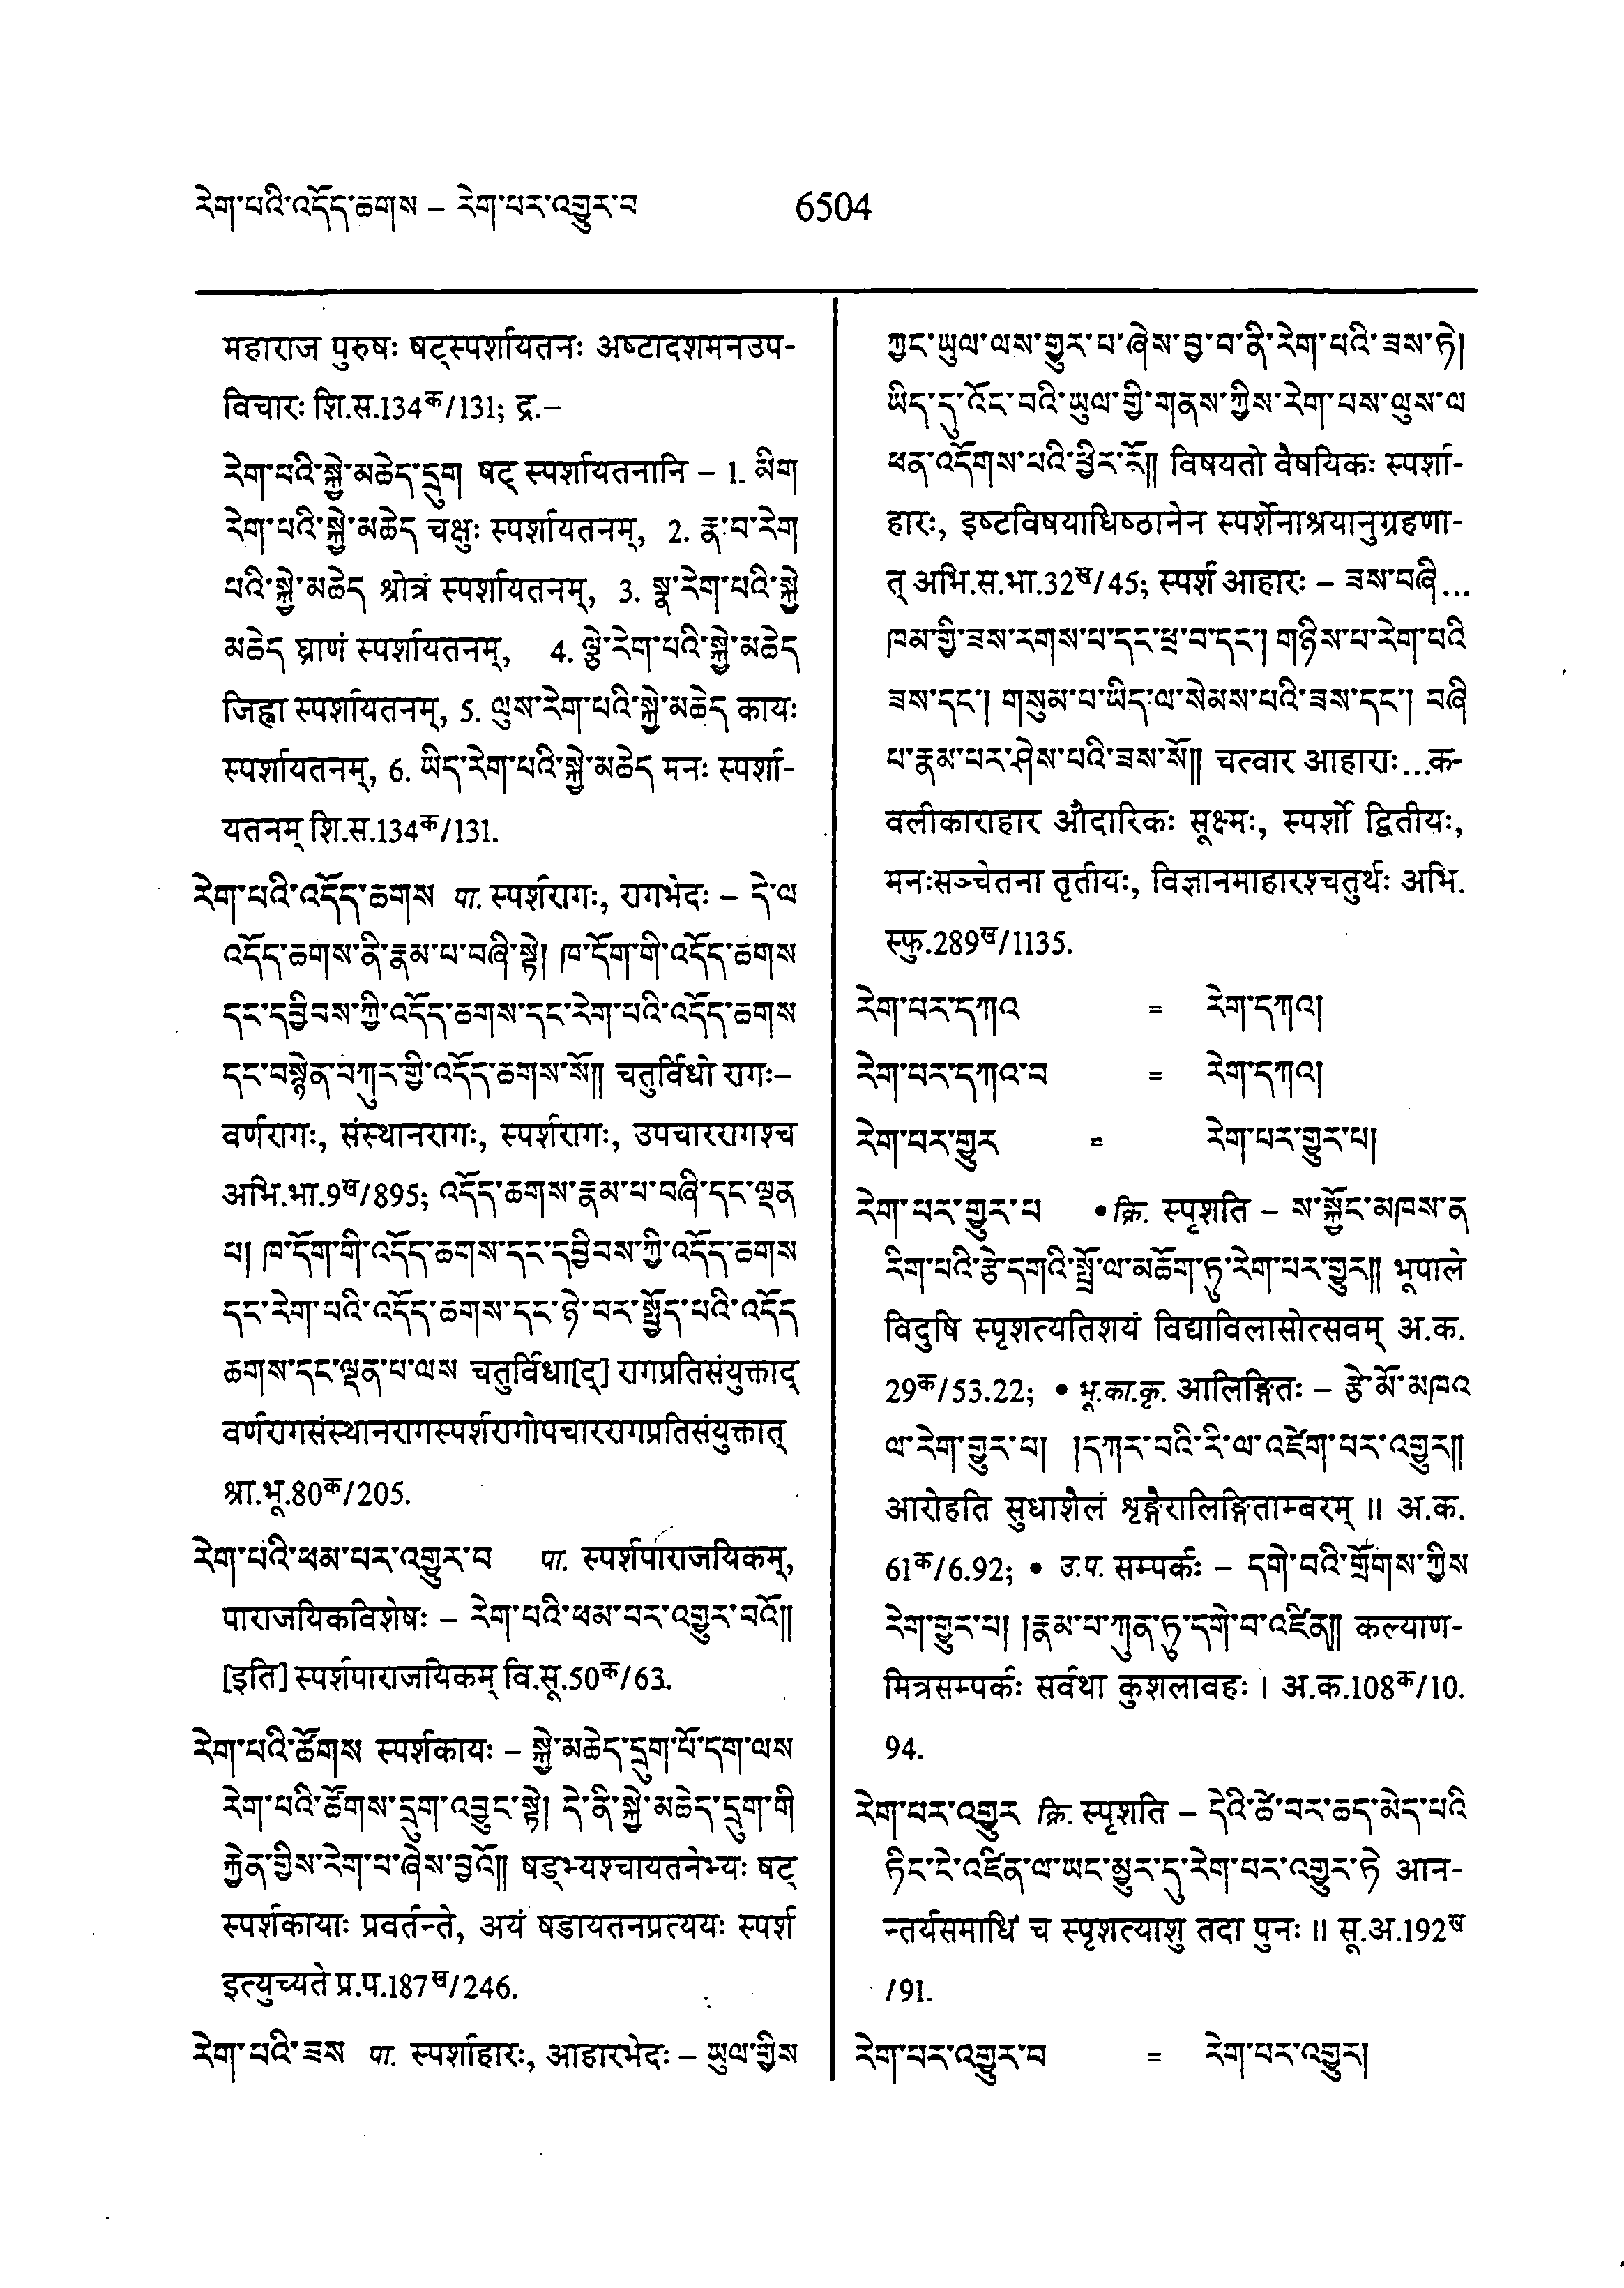 རེག་པའི་འདོད་ཆགས – རེག་པར་འགྱུར་བ
6504
महाराज पुरुषः षट्स्पर्शायतनः अष्टादशमनउप-
विचारः शि.स.134क/131; द्र.–
རེག་པའི་སྐྱེ་མཆེད་དྲུག षट् स्पर्शायतनानि – 1. མིག
རེག་པའི་སྐྱེ་མཆེད चक्षुः स्पर्शायतनम्, 2. རྣ་བ་རེག
པའི་སྐྱེ་མཆེད श्रोत्रं स्पर्शायतनम्, 3. སྣ་རེག་པའི་སྐྱེ
མཆེད घ्राणं स्पर्शायतनम्, 4. ལྕེ་རེག་པའི་སྐྱེ་མཆེད
जिह्वा स्पर्शायतनम्, 5. ལུས་རེག་པའི་སྐྱེ་མཆེད कायः
स्पर्शायतनम्, 6. ཡིད་རེག་པའི་སྐྱེ་མཆེད मनः स्पर्शा-
यतनम् शि.स.134क/131.
རེག་པའི་འདོད་ཆགས पा. स्पर्शरागः, रागभेदः – དེ་ལ
འདོད་ཆགས་ནི་རྣམ་པ་བཞི་སྟེ། ཁ་དོག་གི་འདོད་ཆགས
དང་དབྱིབས་ཀྱི་འདོད་ཆགས་དང་རེག་པའི་འདོད་ཆགས
དང་བསྙེན་བཀུར་གྱི་འདོད་ཆགས་སོ༎ चतुर्विधो रागः–
वर्णरागः, संस्थानरागः, स्पर्शरागः, उपचाररागश्च
अभि.भा.9ख/895; འདོད་ཆགས་རྣམ་པ་བཞི་དང་ལྡན
པ། ཁ་དོག་གི་འདོད་ཆགས་དང་དབྱིབས་ཀྱི་འདོད་ཆགས
དང་རེག་པའི་འདོད་ཆགས་དང་ཉེ་བར་སྤྱོད་པའི་འདོད
ཆགས་དང་ལྡན་པ་ལས चतुर्विधा[द्] रागप्रतिसंयुक्ताद्
वर्णरागसंस्थानरागस्पर्शरागोपचाररागप्रतिसंयुक्तात्
श्रा.भू.80क/205.
རེག་པའི་ཕམ་པར་འགྱུར་བ पा. स्पर्शपाराजयिकम्,
पाराजयिकविशेषः – རེག་པའི་ཕམ་པར་འགྱུར་བའོ༎
[इति] स्पर्शपाराजयिकम् वि.सू.50क/63.
རེག་པའི་ཚོགས स्पर्शकायः – སྐྱེ་མཆེད་དྲུག་པོ་དག་ལས
རེག་པའི་ཚོགས་དྲུག་འབྱུང་སྟེ། དེ་ནི་སྐྱེ་མཆེད་དྲུག་གི
རྐྱེན་གྱིས་རེག་པ་ཞེས་བྱའོ༎ षड्भ्यश्चायतनेभ्यः षट्
स्पर्शकायाः प्रवर्तन्ते, अयं षडायतनप्रत्ययः स्पर्श
इत्युच्यते प्र.प.187ख/246.
རེག་པའི་ཟས पा. स्पर्शाहारः, आहारभेदः – ཡུལ་གྱིས
ཀྱང་ཡུལ་ལས་གྱུར་པ་ཞེས་བྱ་བ་ནི་རེག་པའི་ཟས་ཏེ།
ཡིད་དུ་འོང་བའི་ཡུལ་གྱི་གནས་ཀྱིས་རེག་པས་ལུས་ལ
ཕན་འདོགས་པའི་ཕྱིར་རོ༎ विषयतो वैषयिकः स्पर्शा-
हारः, इष्टविषयाधिष्ठानेन स्पर्शेनाश्रयानुग्रहणा-
त् अभि.स.भा.32ख/45; स्पर्श आहारः – ཟས་བཞི...
ཁམ་གྱི་ཟས་རགས་པ་དང་ཕྲ་བ་དང་། གཉིས་པ་རེག་པའི
ཟས་དང་། གསུམ་པ་ཡིད་ལ་སེམས་པའི་ཟས་དང་། བཞི
པ་རྣམ་པར་ཤེས་པའི་ཟས་སོ༎ चत्वार आहाराः...क-
वलीकाराहार औदारिकः सूक्ष्मः, स्पर्शो द्वितीयः,
मनःसञ्चेतना तृतीयः, विज्ञानमाहारश्चतुर्थः अभि.
स्फु.289ख/1135.
རེག་པར་དཀའ = རེག་དཀའ།
རེག་པར་དཀའ་བ = རེག་དཀའ།
རེག་པར་གྱུར = རེག་པར་གྱུར་པ།
རེག་པར་གྱུར་པ • क्रि. स्पृशति – ས་སྐྱོང་མཁས་ན
རིག་པའི་རྩེ་དགའི་སྤྲོ་ལ་མཆོག་ཏུ་རེག་པར་གྱུར༎ भूपाले
विदुषि स्पृशत्यतिशयं विद्याविलासोत्सवम् अ.क.
29क/53.22; • भू.का.कृ. आलिङ्गितः – རྩེ་མོ་མཁའ
ལ་རེག་གྱུར་པ། །དཀར་བའི་རི་ལ་འཛེག་པར་འགྱུར༎
आरोहति सुधाशैलं शृङ्गैरालिङ्गिताम्बरम् ॥ अ.क.
61क/6.92; • उ.प. सम्पर्कः – དགེ་བའི་གྲོགས་ཀྱིས
རེག་གྱུར་པ། །རྣམ་པ་ཀུན་ཏུ་དགེ་བ་འཛིན༎ कल्याण-
मित्रसम्पर्कः सर्वथा कुशलावहः । अ.क.108क/10.
94.
རེག་པར་འགྱུར क्रि. स्पृशति – དེའི་ཚེ་བར་ཆད་མེད་པའི
ཏིང་ངེ་འཛིན་ལ་ཡང་མྱུར་དུ་རེག་པར་འགྱུར་ཏེ आन-
न्तर्यसमाधिं च स्पृशत्याशु तदा पुनः ॥ सू.अ.192ख
/91.
རེག་པར་འགྱུར་བ = རེག་པར་འགྱུར།